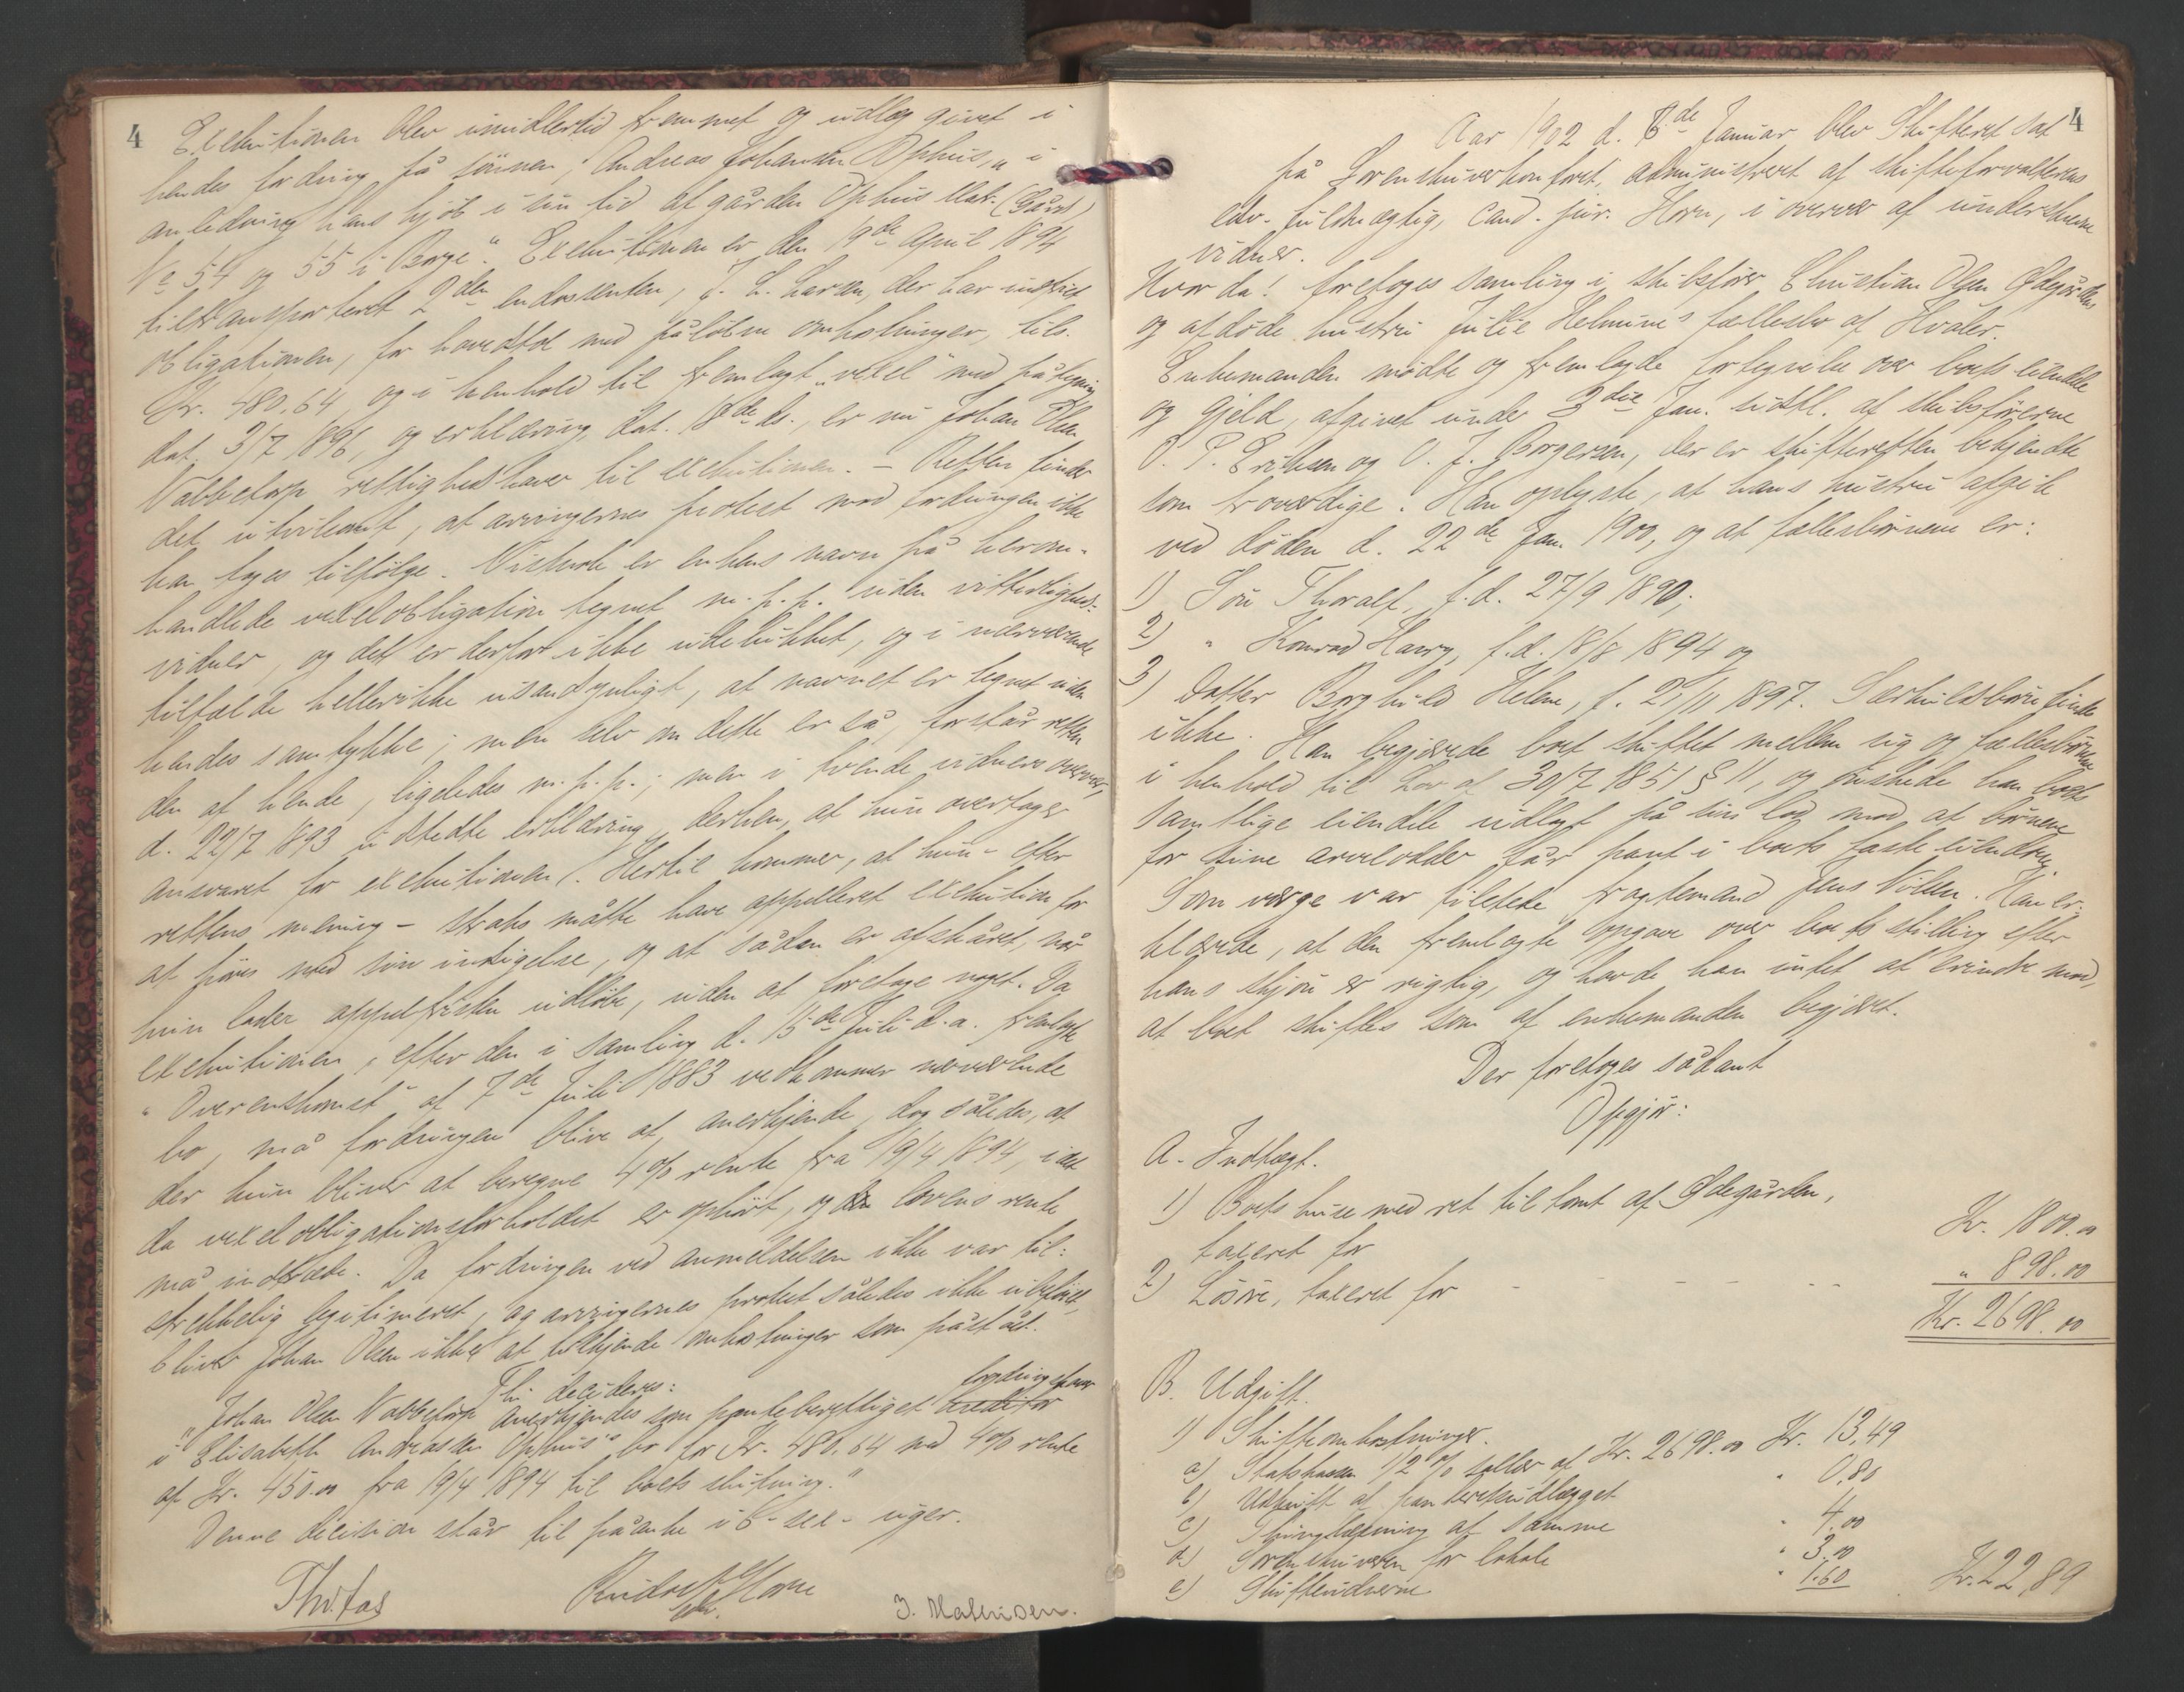 4
Exekutionen blev imidlertid fremmet og udlæg givet i
hendes fordring på sønnen, Andreas Johansen Ophus, „i
anledning hans kjøb i sin tid af gården Ophus Matr. (Gårds)
No 54 og 55 i Borge". Exekutionen er den 19de April 1894
tiltransporteret 2den endossenten, J. L. Larsen, der har indfriet
obligationen, for hovedstol med påløbne omkostninger, tils.
Kr. 480,64, og i henhold til fremlagt „vexel" med påtegning
dat. 3/7 1896, og erklæring, dat. 18de ds., er nu Johan Olsen
Nabbetorp rettighedshaver til exekutionen. – Retten finder
det utvilsomt, at arvingernes protest mod fordringen ikke
kan tages tilfølge. Vistnok er enkens navn på heromhandlede
vexelobligation tegnet m. p. p. uden vitterligheds-
vidner, og det er derfor ikke udelukket, og i nærværende
tilfælde heller ikke usandsynligt, at navnet er tegnet uden
hendes samtykke; men selv om dette er så, forstår retten
den af hende, ligeledes m. p. p.; men i tvende vidners overvær,
d. 22/7 1893 udstedte erklæring derhen, at hun overtager
ansvaret for exekutionen. Hertil kommer, at hun – efter
rettens mening – straks måtte have appelleret exekution for
at høres med sin indsigelse, og at sådan er afskåret, når
hun lader appelfristen udløbe, uden at foretage noget. Da
exekutionen, efter den i samling d. 15de Juli d. a. fremlagte
"Overenskomst" af 7de Juli 1883 vedkommer nærværende
bo, må fordringen blive at anerkjende, dog således, at
der kun bliver at beregne 4 % rente fra 19/4 1894, idet
da vexelobligationsforholdet er ophørt, og lovens rente
må indtræde. Da fordringen ved anmeldelsen ikke var til-
strekkelig legitimeret, og arvingernes protest således ikke ubeføiet,
bliver Johan Olsen ikke at tilkjende omkostninger som påstået.
Thi decideres:
fordringshaver
"Johan Olsen Nabbetorp anerkjendes som panteberettiget kreditor
i Elisabeth Andreasdr Ophus's bo for Kr. 480.64 med 4 % rente
af Kr. 450.00 fra 19/4 1894 til boets slutning."
Denne decision står til påanke i 6 – sex – uger.
Rudolf Horn
J. Mathisen.
4
Aar 1902 d. 8de Januar blev Skifteret sat
på Sorenskriverkontoret, administreret af skifteforvalterens
edv. fuldmægtig, cand. jur. Horn, i overvær af underskrevne
vidner.
Hvorda! foretoges samling i skibsfører Christian Olsen Ødegården
og afdøde hustru Julie Helmine's fællesbo af Hvaler.
Enkemanden mødte og fremlagde fortegnelse over boets eiendele
og gjeld, afgivet under 3die Jan. sidstl. af skibsførerne
O. P. Eriksen og O. J. Borgersen, der er skifteretten bekjendte
som troværdige. Han oplyste, at hans hustru afgik
ved døden d. 22de Jan. 1900, og at fællesbørnene er:
1) Søn Thoralf, f. d. 27/9 1890;
2) " Konrad Harry, f. d. 18/8 1894 og
3) Datter Borghild Helene, f. 21/11 1897. Særkuldsbørn findes
ikke. Han begjærede boet skiftet mellem sig og fællesbørnene
i henhold til Lov af 30/7 1851 § 11, og ønskede han boets
samtlige eiendele udlagt på sin lod mod at børnene
for sine arvelodder får pant i boets faste eiendom.
Som værge var tilstede fragtemand Jens Nilsen. Han er-
klærede, at den fremlagte opgave over boets stilling efter
hans skjøn er rigtig, og havde han intet at erindre mod,
at boet skiftes som af enkemanden begjæret.
Der foretoges sådant
Opgjør:
A. Indtægt.
1) Boets huse med ret til tomt af Ødegården,
taxeret for Kr. 1800.00
2) Løsøre, taxeret for - - - - - " 898.00
Kr. 2698.00
B. Udgift.
1) Skifteomkostninger.
a) Statskassen 1/2 % saller af Kr. 2698.00 Kr. 13,49
b) Udskrift af panteretsudlægget " 0.80
c) Thinglæsning af samme " 4.00
d) Sorenskriveren for lokale " 3.00
e) Skiftevidnerne " 1.60 Kr. 22,89